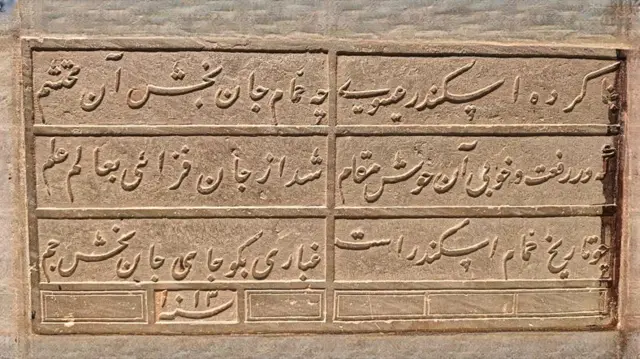 بنا کرده اسکندر عیسوی چه حمام جان بخش آن محتشم
که در رفعت و خوبی آن خوش مقام شد از جان فزائی بعالم علم
چو تاریخ حمام اسکندر است غباری بگو جای جان بخش جم
سنه ۱۰۱۳